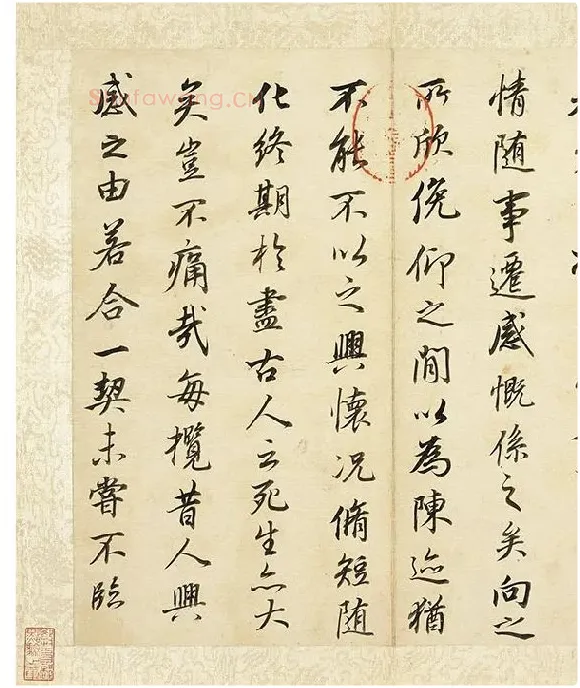 情随事遷感慨係之矣向之
所欣俛仰之間以為陳迹猶
不能不以之興懷况脩短随
化終期於盡古人云死生亦大
矣豈不痛哉每攬昔人興
感之由若合一契未嘗不臨
Shufawang.cn